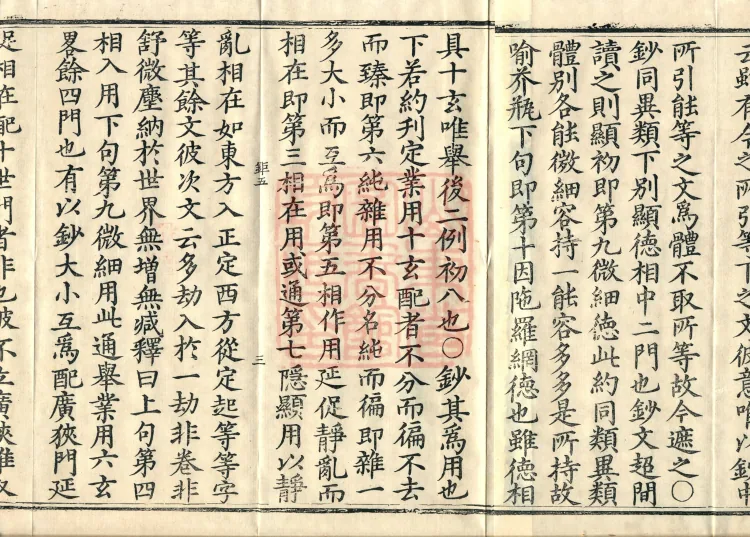 云雖有今之所引等下之文彼意唯以鈔中
所引能等之文爲體不取所等故今遮之〇
鈔同異類下別顯德相中二門也鈔文超間
讀之則顯初即第九微細德此約同類異類
體別各能微細容持一能容多多是所持故
喻芥瓶下句即第十因陁羅網德也雖德相
具十玄唯舉後二例初八也〇鈔其爲用也
下若約刋定業用十玄配者不分而徧不去
而臻即第六純雜用不分名純而徧即雜一
多大小而互爲即第五相作用延促靜亂而
相在即第三相在用或通第七隱顯用以靜
鉅五
三
亂相在如東方入正定西方從定起等等字
等其餘文彼次文云多劫入於一劫非卷非
舒微塵納於世界無增無減釋曰上句第四
相入用下句第九微細用此通舉業用六玄
畧餘四門也有以鈔大小互爲配廣狹門延
促相在配十世門者非也彼不立廣狹